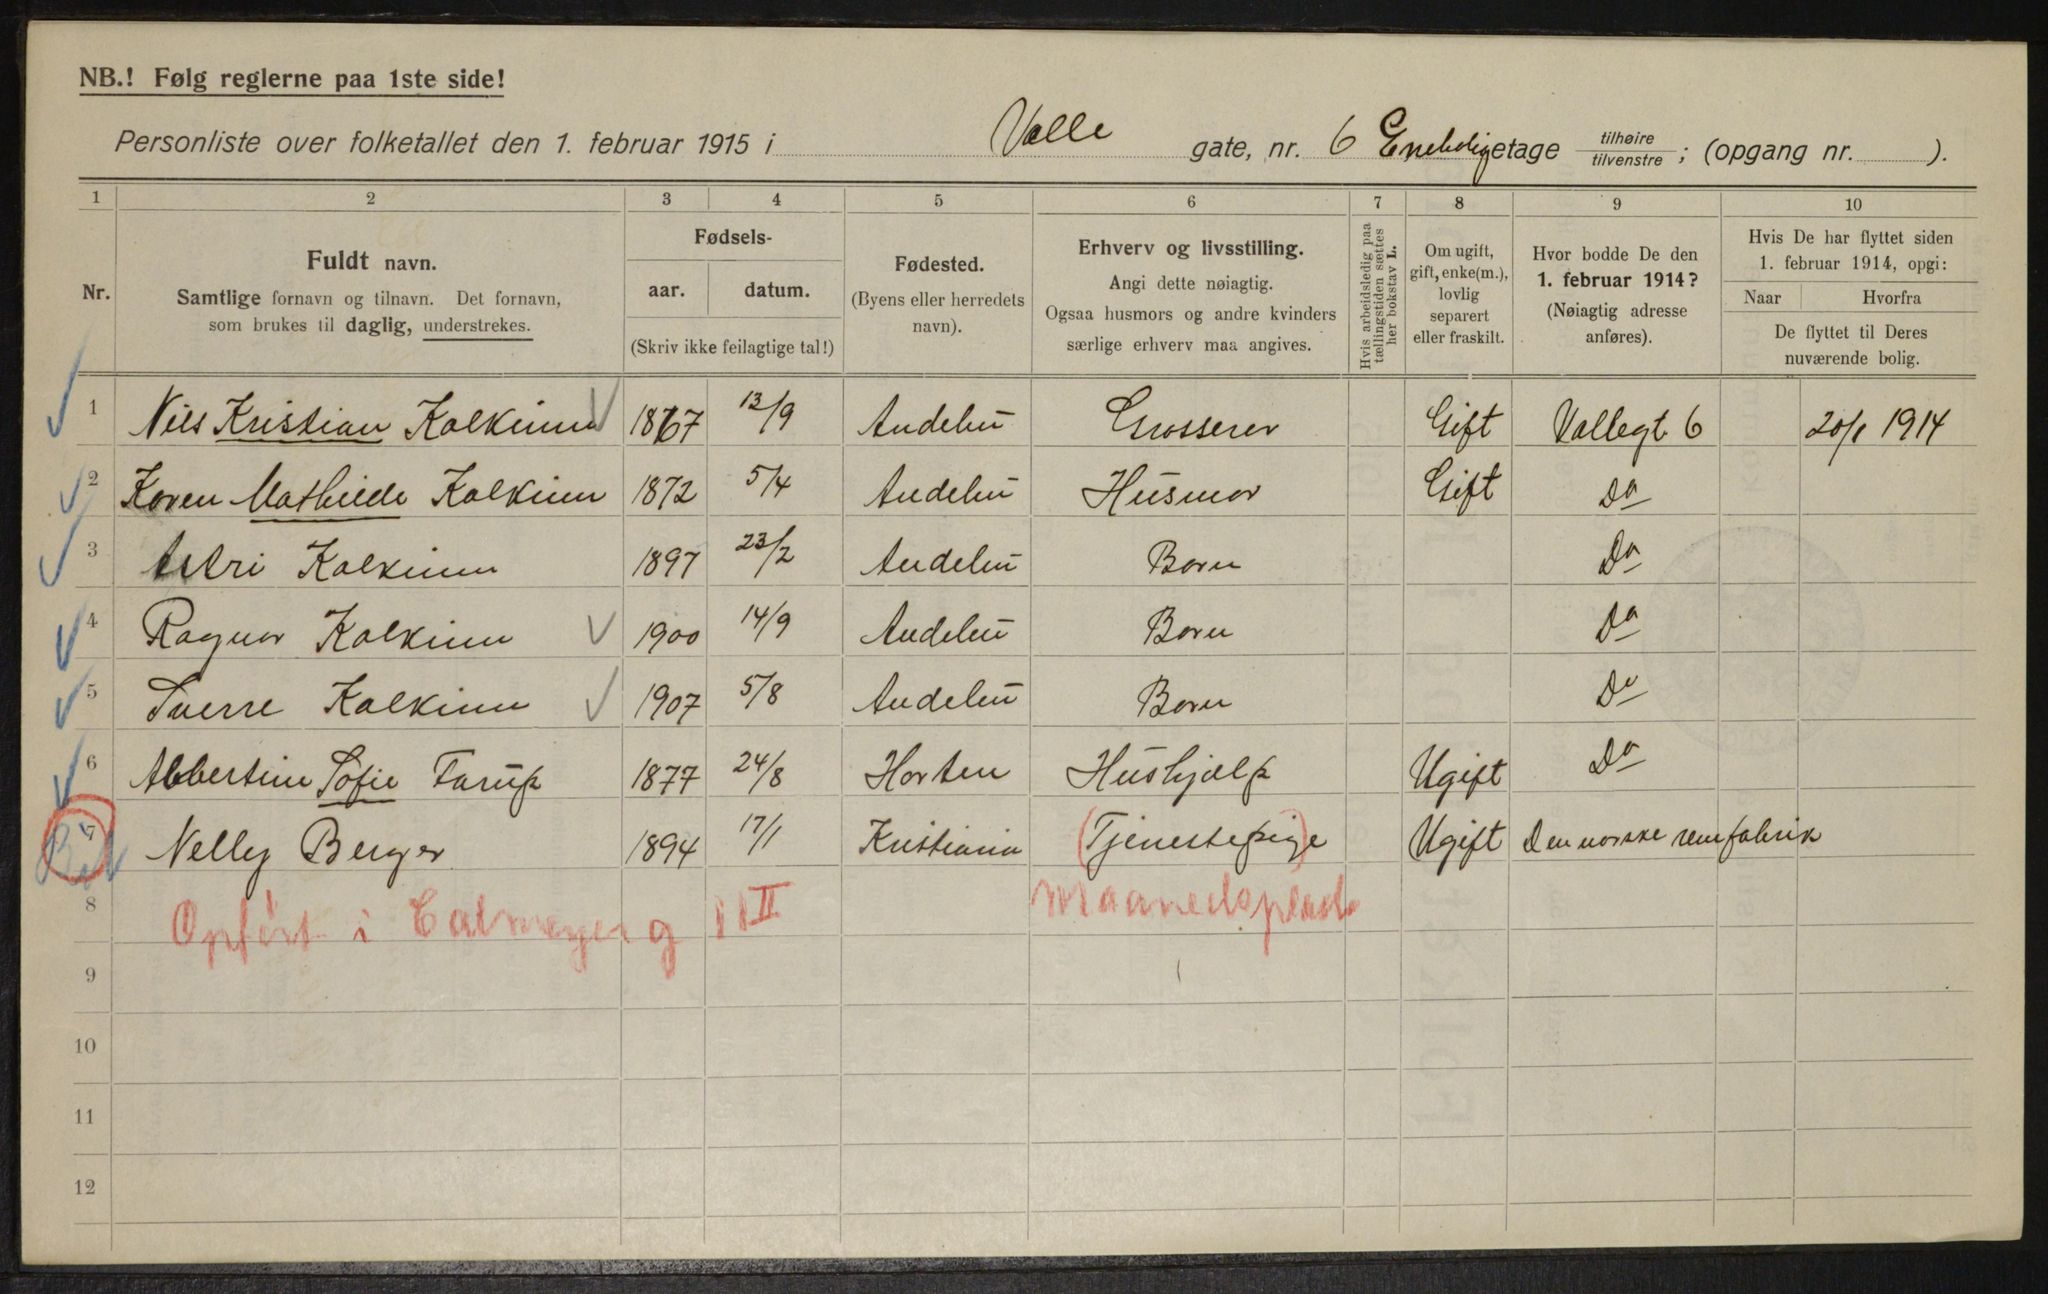 NB.! Følg reglerne paa 1ste side!
Personliste over folketallet den 1. februar 1915 i Valle gate, nr. 6 Enebolig etage tilhøire / tilvenstre ; (opgang nr. ).
1 2 3 4 5 6 7 8 9 10
Nr.
Fuldt navn.
Samtlige fornavn og tilnavn. Det fornavn,
som brukes til daglig, understrekes.
Fødsels-
aar. datum.
(Skriv ikke feilagtige tal!)
Fødested.
(Byens eller herredets
navn).
Erhverv og livsstilling.
Angi dette nøiagtig.
Ogsaa husmors og andre kvinders
særlige erhverv maa angives.
Hvis arbeidsledig paa
tællingstiden sættes
her bokstav L.
Om ugift,
gift, enke(m.),
lovlig
separert
eller fraskilt.
Hvor bodde De den
1. februar 1914?
(Nøiagtig adresse
anføres).
Hvis De har flyttet siden
1. februar 1914, opgi:
Naar Hvorfra
De flyttet til Deres
nuværende bolig.
1 Nils Kristian Kalkinn 1867 13/9 Andebu Grosserer Gift Vallegt. 6 20/1 1914
2 Karen Mathilde Kalkinn 1872 5/4 Andebu Husmor Gift Do
3 Astri Kalkinn 1897 23/2 Andebu Barn Do
4 Ragnar Kalkinn 1900 14/9 Andebu Barn Do
5 Sverre Kalkinn 1907 5/8 Andebu Barn Do
6 Albertine Sofie Tarup 1877 24/8 Horten Hushjælp Ugift Do
7 Nelly Berger 1894 17/1 Kristiania (Tjenestepige) Ugift Den norske remfabrik
8 Opført i Calmeyer g 11 II Maanedsplads
9
10
11
12